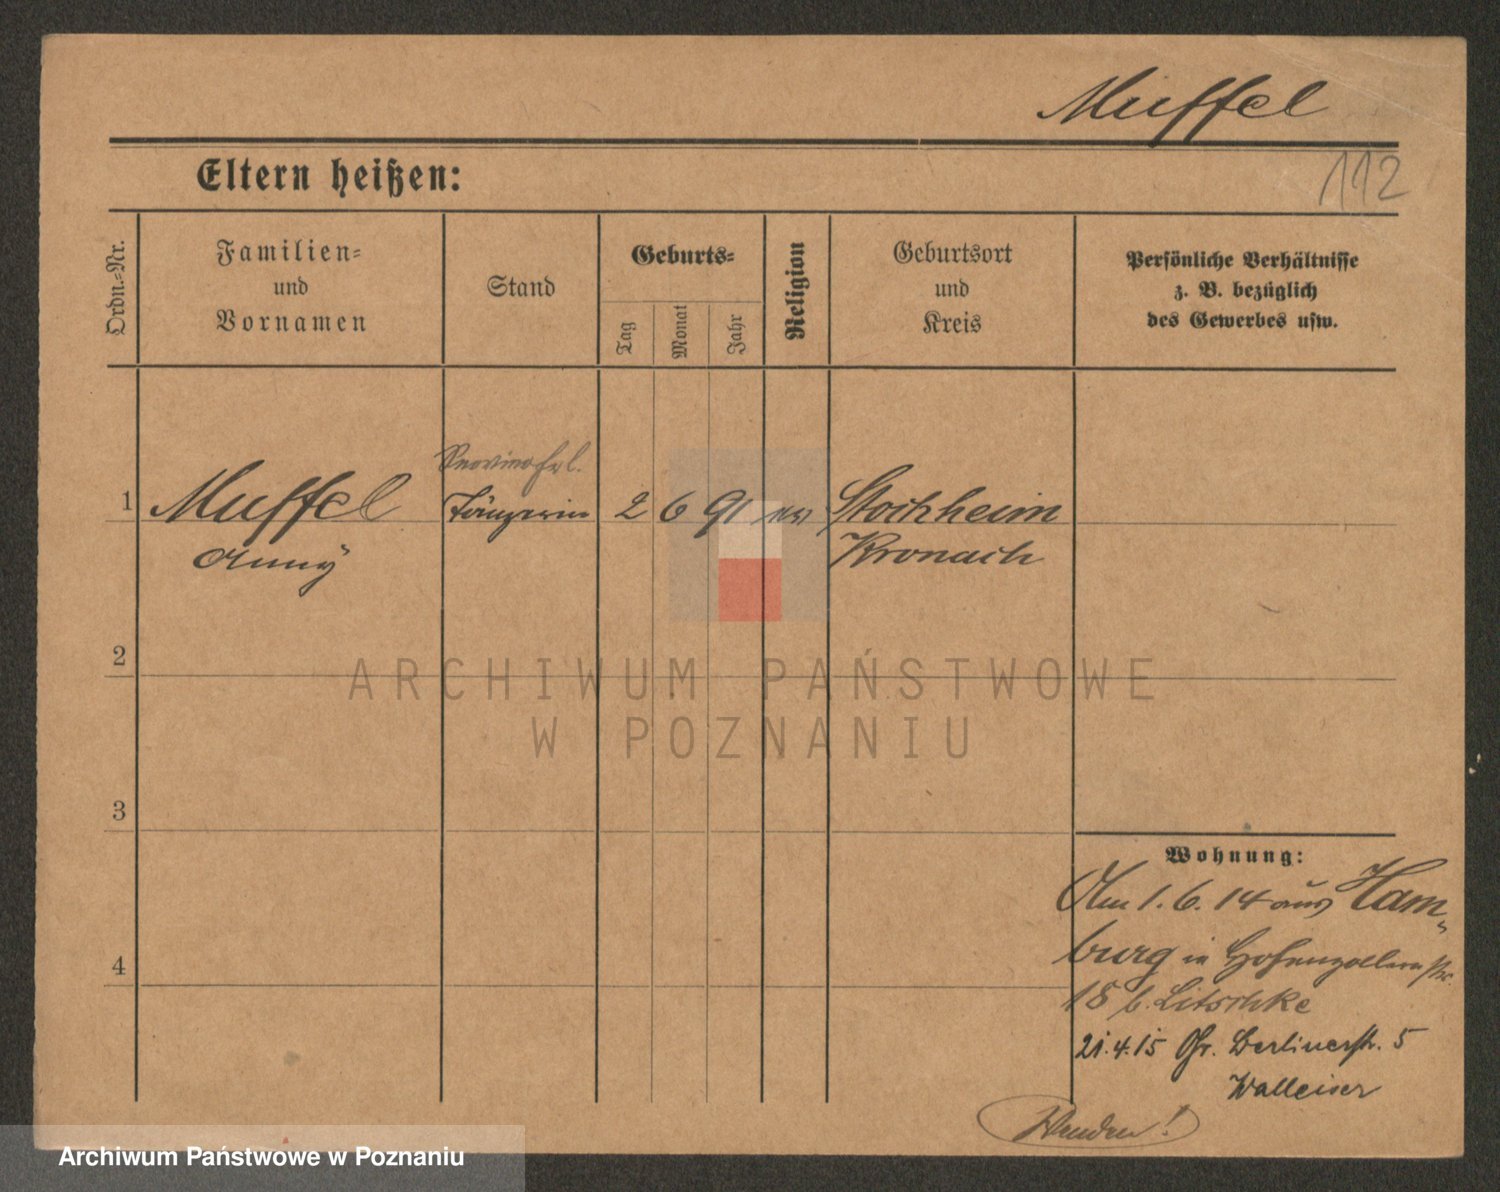 Muffel
112
Eltern heißen:
Ordn.-Nr.
Familien-
und
Vornamen
Stand
Geburts-
Tag
Monat
Jahr
Religion
Geburtsort
und
Kreis
Persönliche Verhältnisse
z. B. bezüglich
des Gewerbes usw.
1 Muffel Tänzerin 2 6 91 ev Stockheim
Anny Kronach
2
3
4
Wohnung:
Am 1. 6. 14 aus Ham-
burg in Hohenzollernstr.
18 b. Litschke
21.4.15 Gr. Berlinerstr. 5
Walleiser
Wenden!
ARCHIWUM PAŃSTWOWE
W POZNANIU
Archiwum Państwowe w Poznaniu